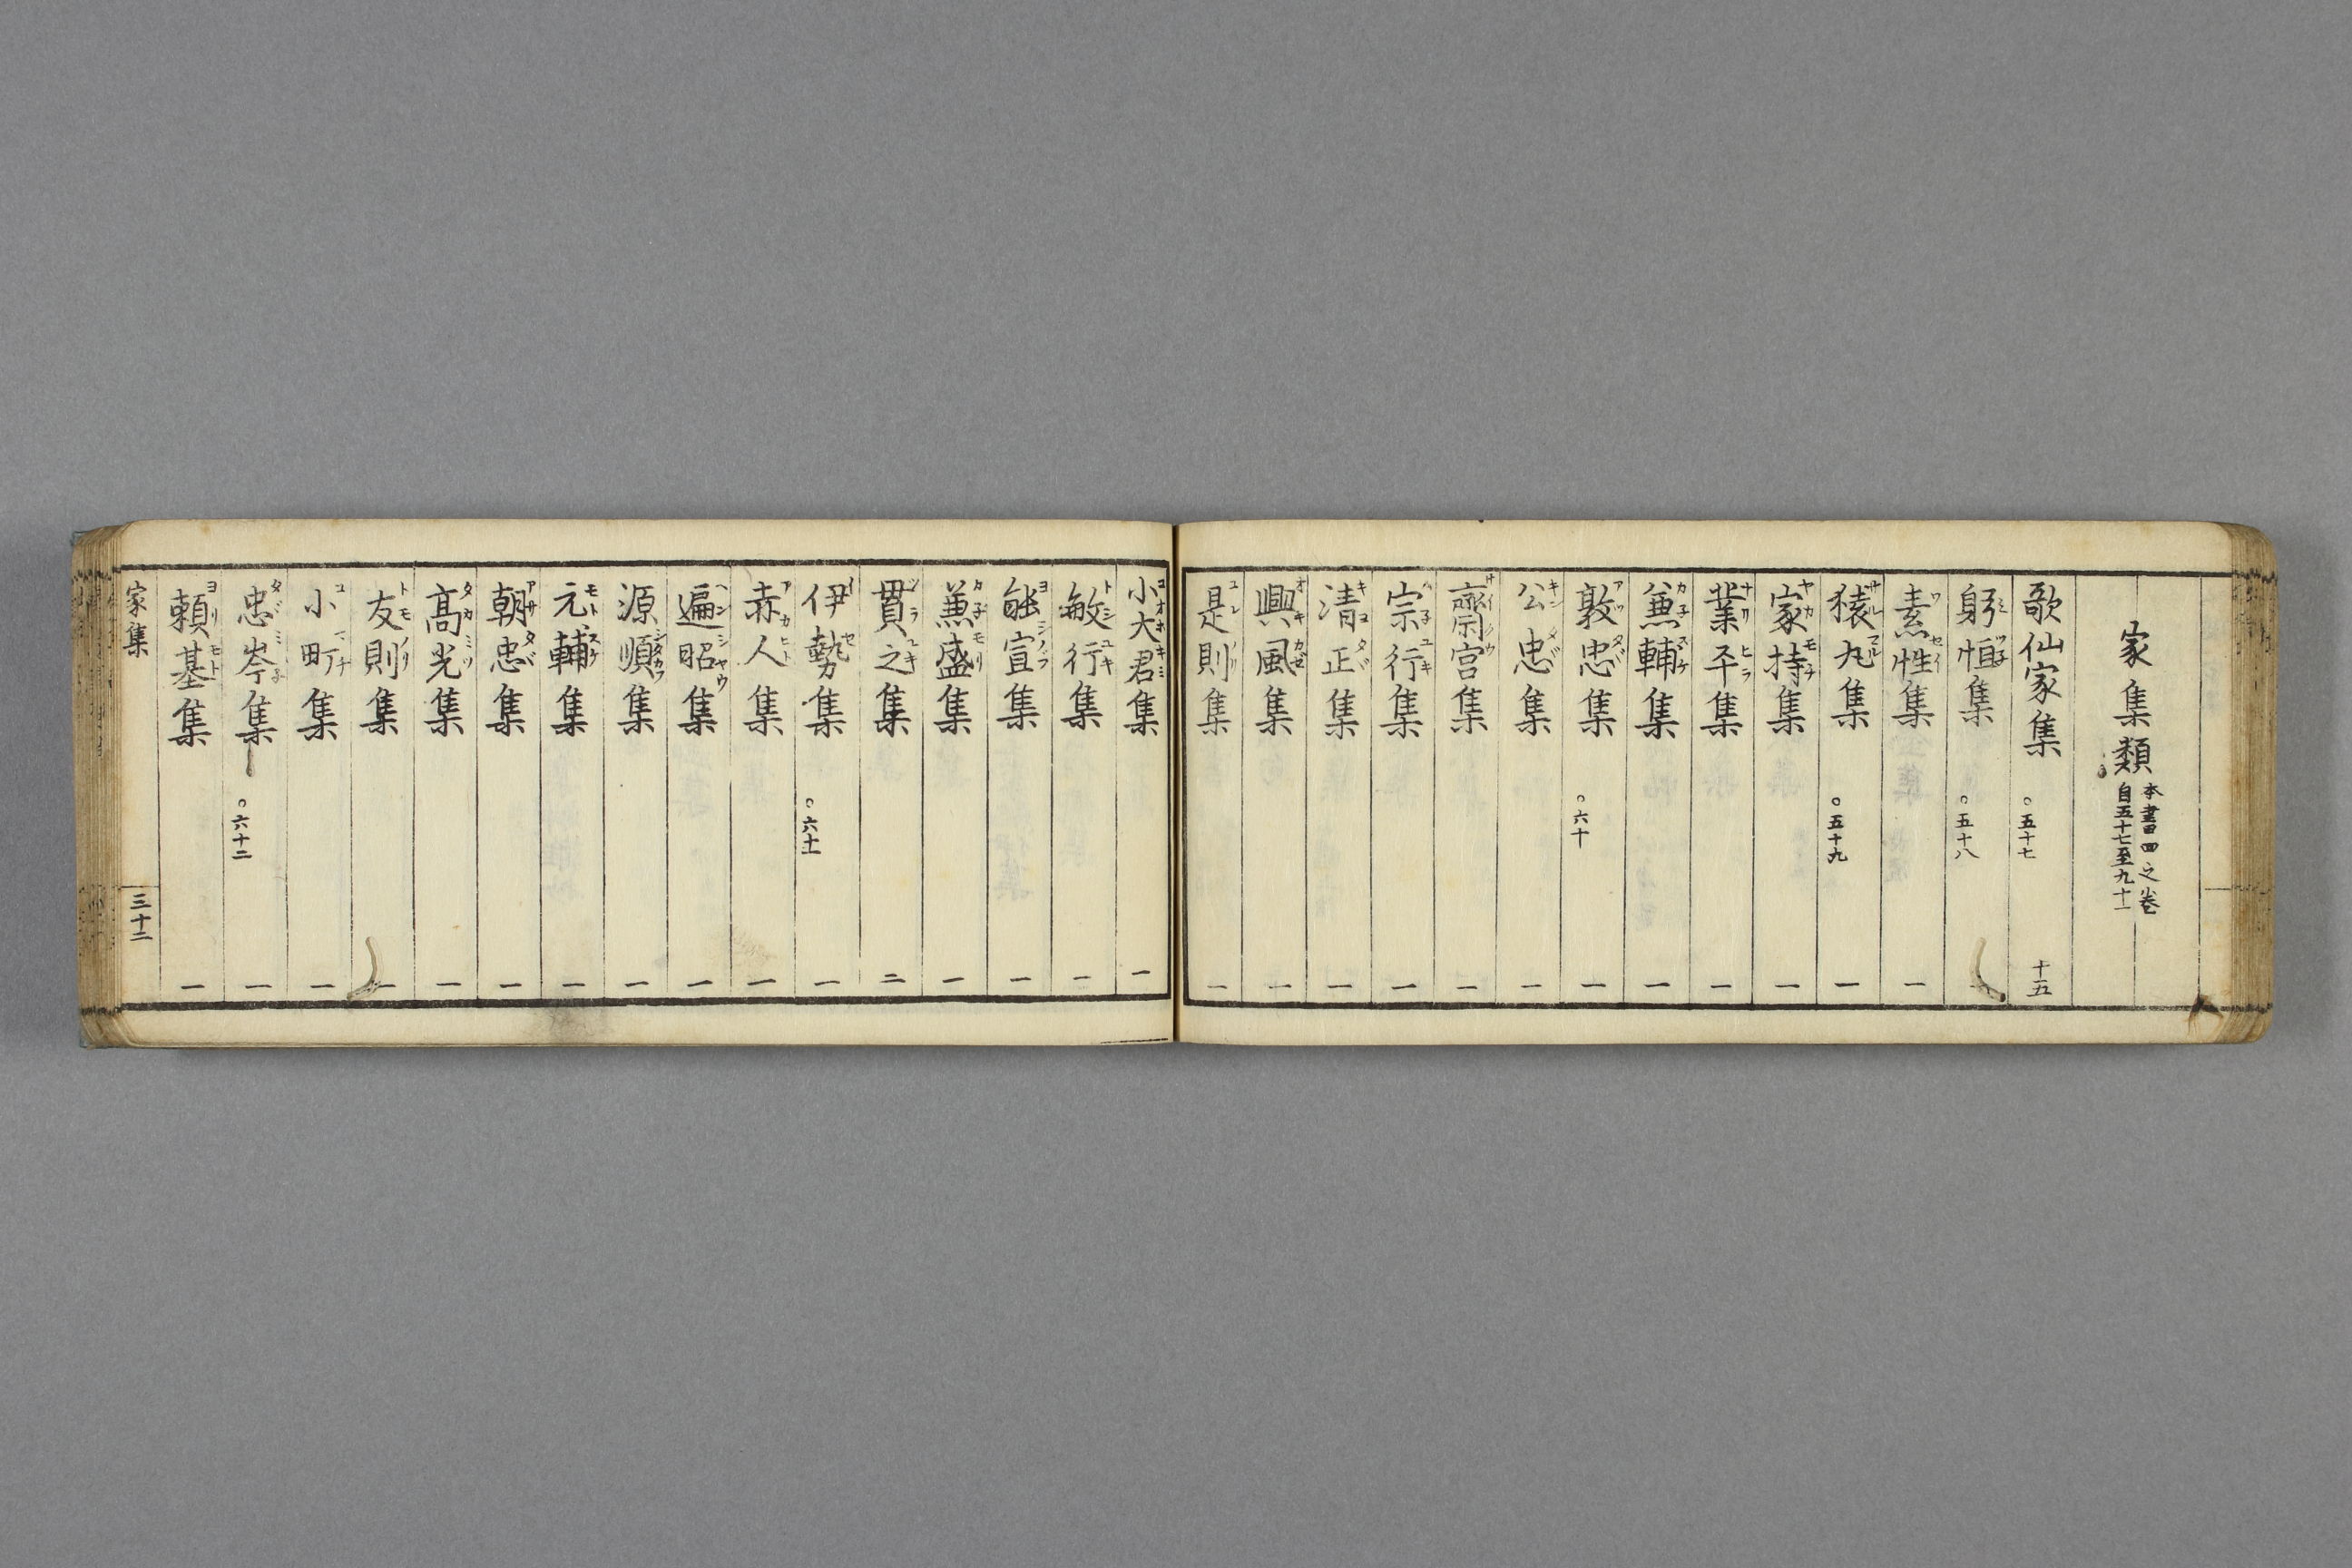 家集類 本書四之巻
自五十七至九十一
歌仙家集 ○五十七 十五
躬恒集 ○五十八
素性集 一
猿丸集 ○五十九 一
家持集 一
業平集 一
兼輔集 一
敦忠集 ○六十 一
公忠集 一
齋宮集 一
宗行集 一
清正集 一
興風集 一
是則集 一
小大君集 一
敏行集 一
能宣集 一
兼盛集 一
貫之集 二
伊勢集 ○六十一 一
赤人集 一
遍昭集 一
源順集 一
元輔集 一
朝忠集 一
高光集 一
友則集 一
小町集 一
忠岑集 ○六十二 一
頼基集 一
家集 三十二